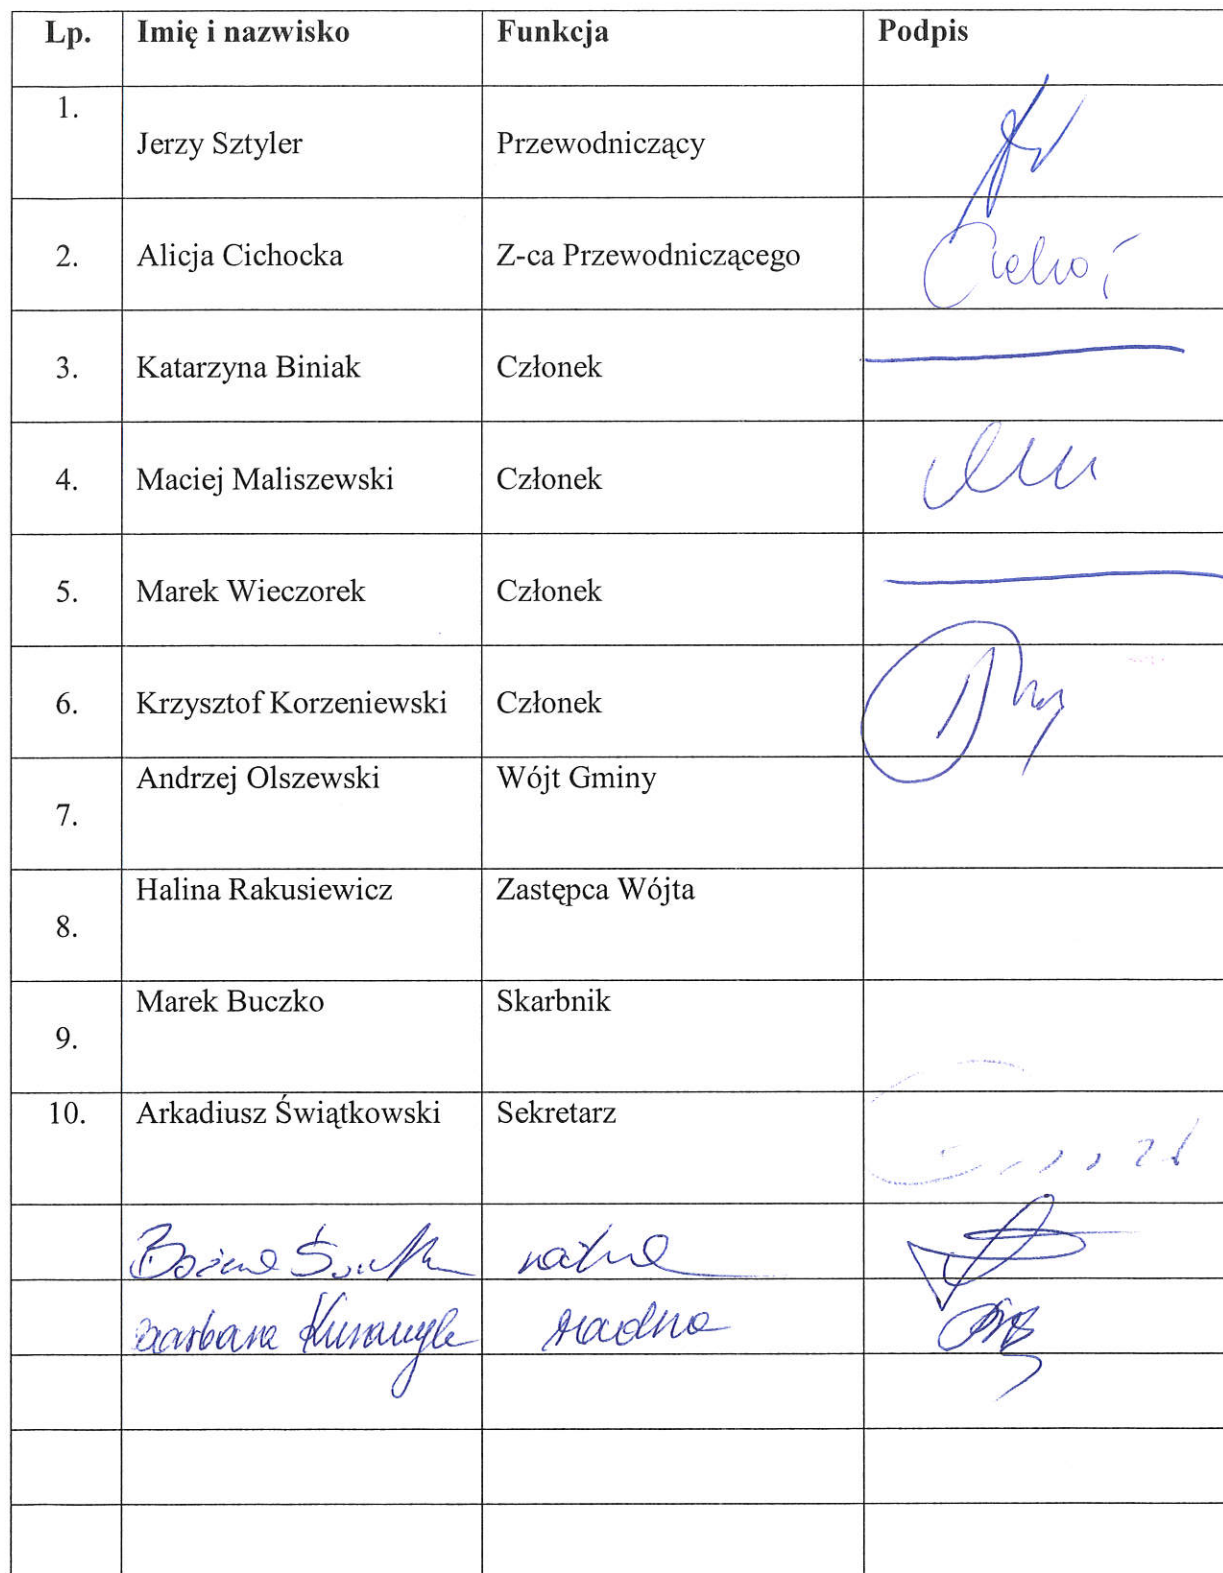 Lp. Imię i nazwisko Funkcja Podpis
1. Jerzy Sztyler Przewodniczący
2. Alicja Cichocka Z-ca Przewodniczącego
3. Katarzyna Biniak Członek
4. Maciej Maliszewski Członek
5. Marek Wieczorek Członek
6. Krzysztof Korzeniewski Członek
7. Andrzej Olszewski Wójt Gminy
8. Halina Rakusiewicz Zastępca Wójta
9. Marek Buczko Skarbnik
10. Arkadiusz Świątkowski Sekretarz
Bożena
Barbara radna